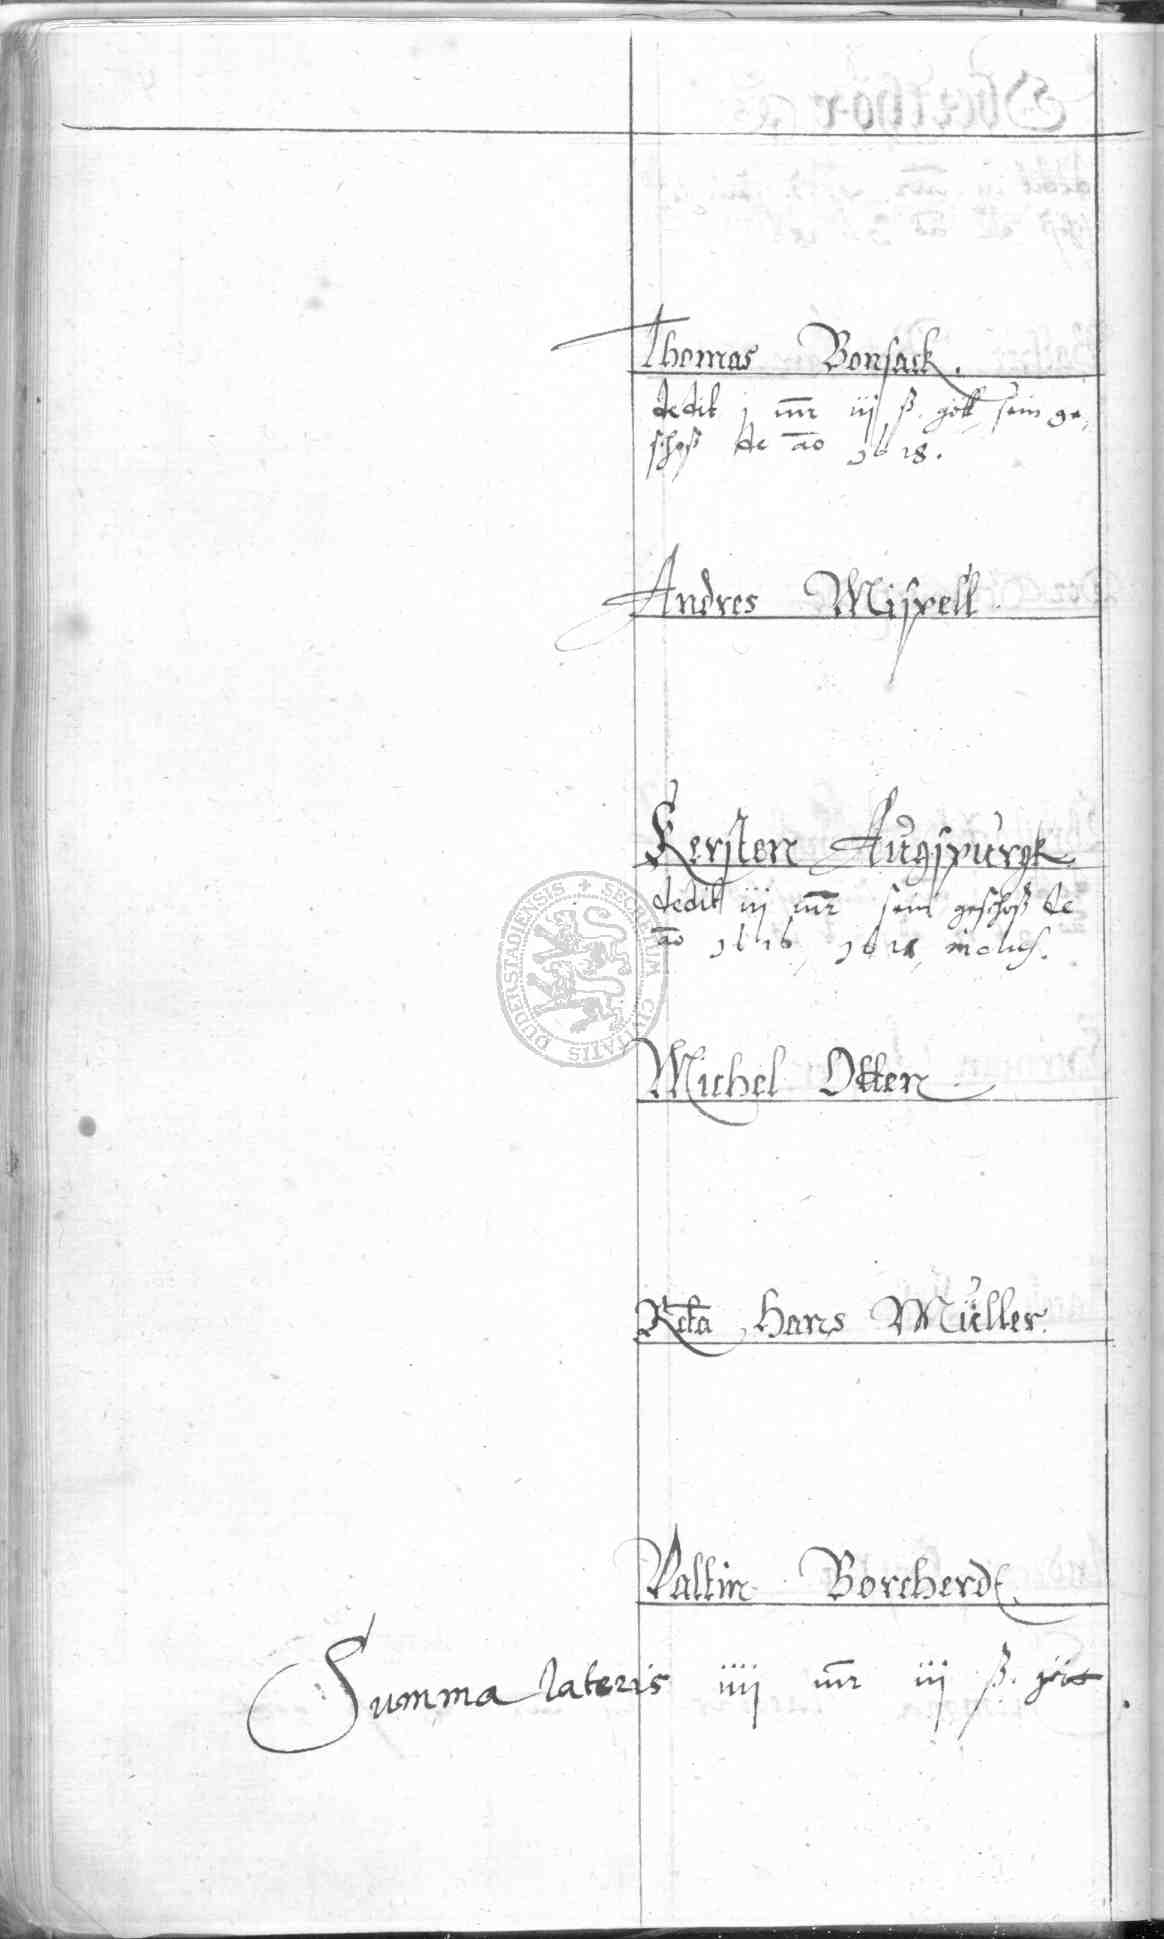 Thomas Bonsack.
dedit j mr iij ß. gött sein ge,
schoß de ao 1618.
Andres Mispell
Kersten Augspurgk
dedit iij mr sein geschoß de
ao 1616, 1618, inclus.
Michel Otten
Rcta Hans Müller.
Valtin Borcherdt
Summa lateris iiij mr iij ß. gött.
SECRETUM CIVITATIS DUDERSTADIENSIS